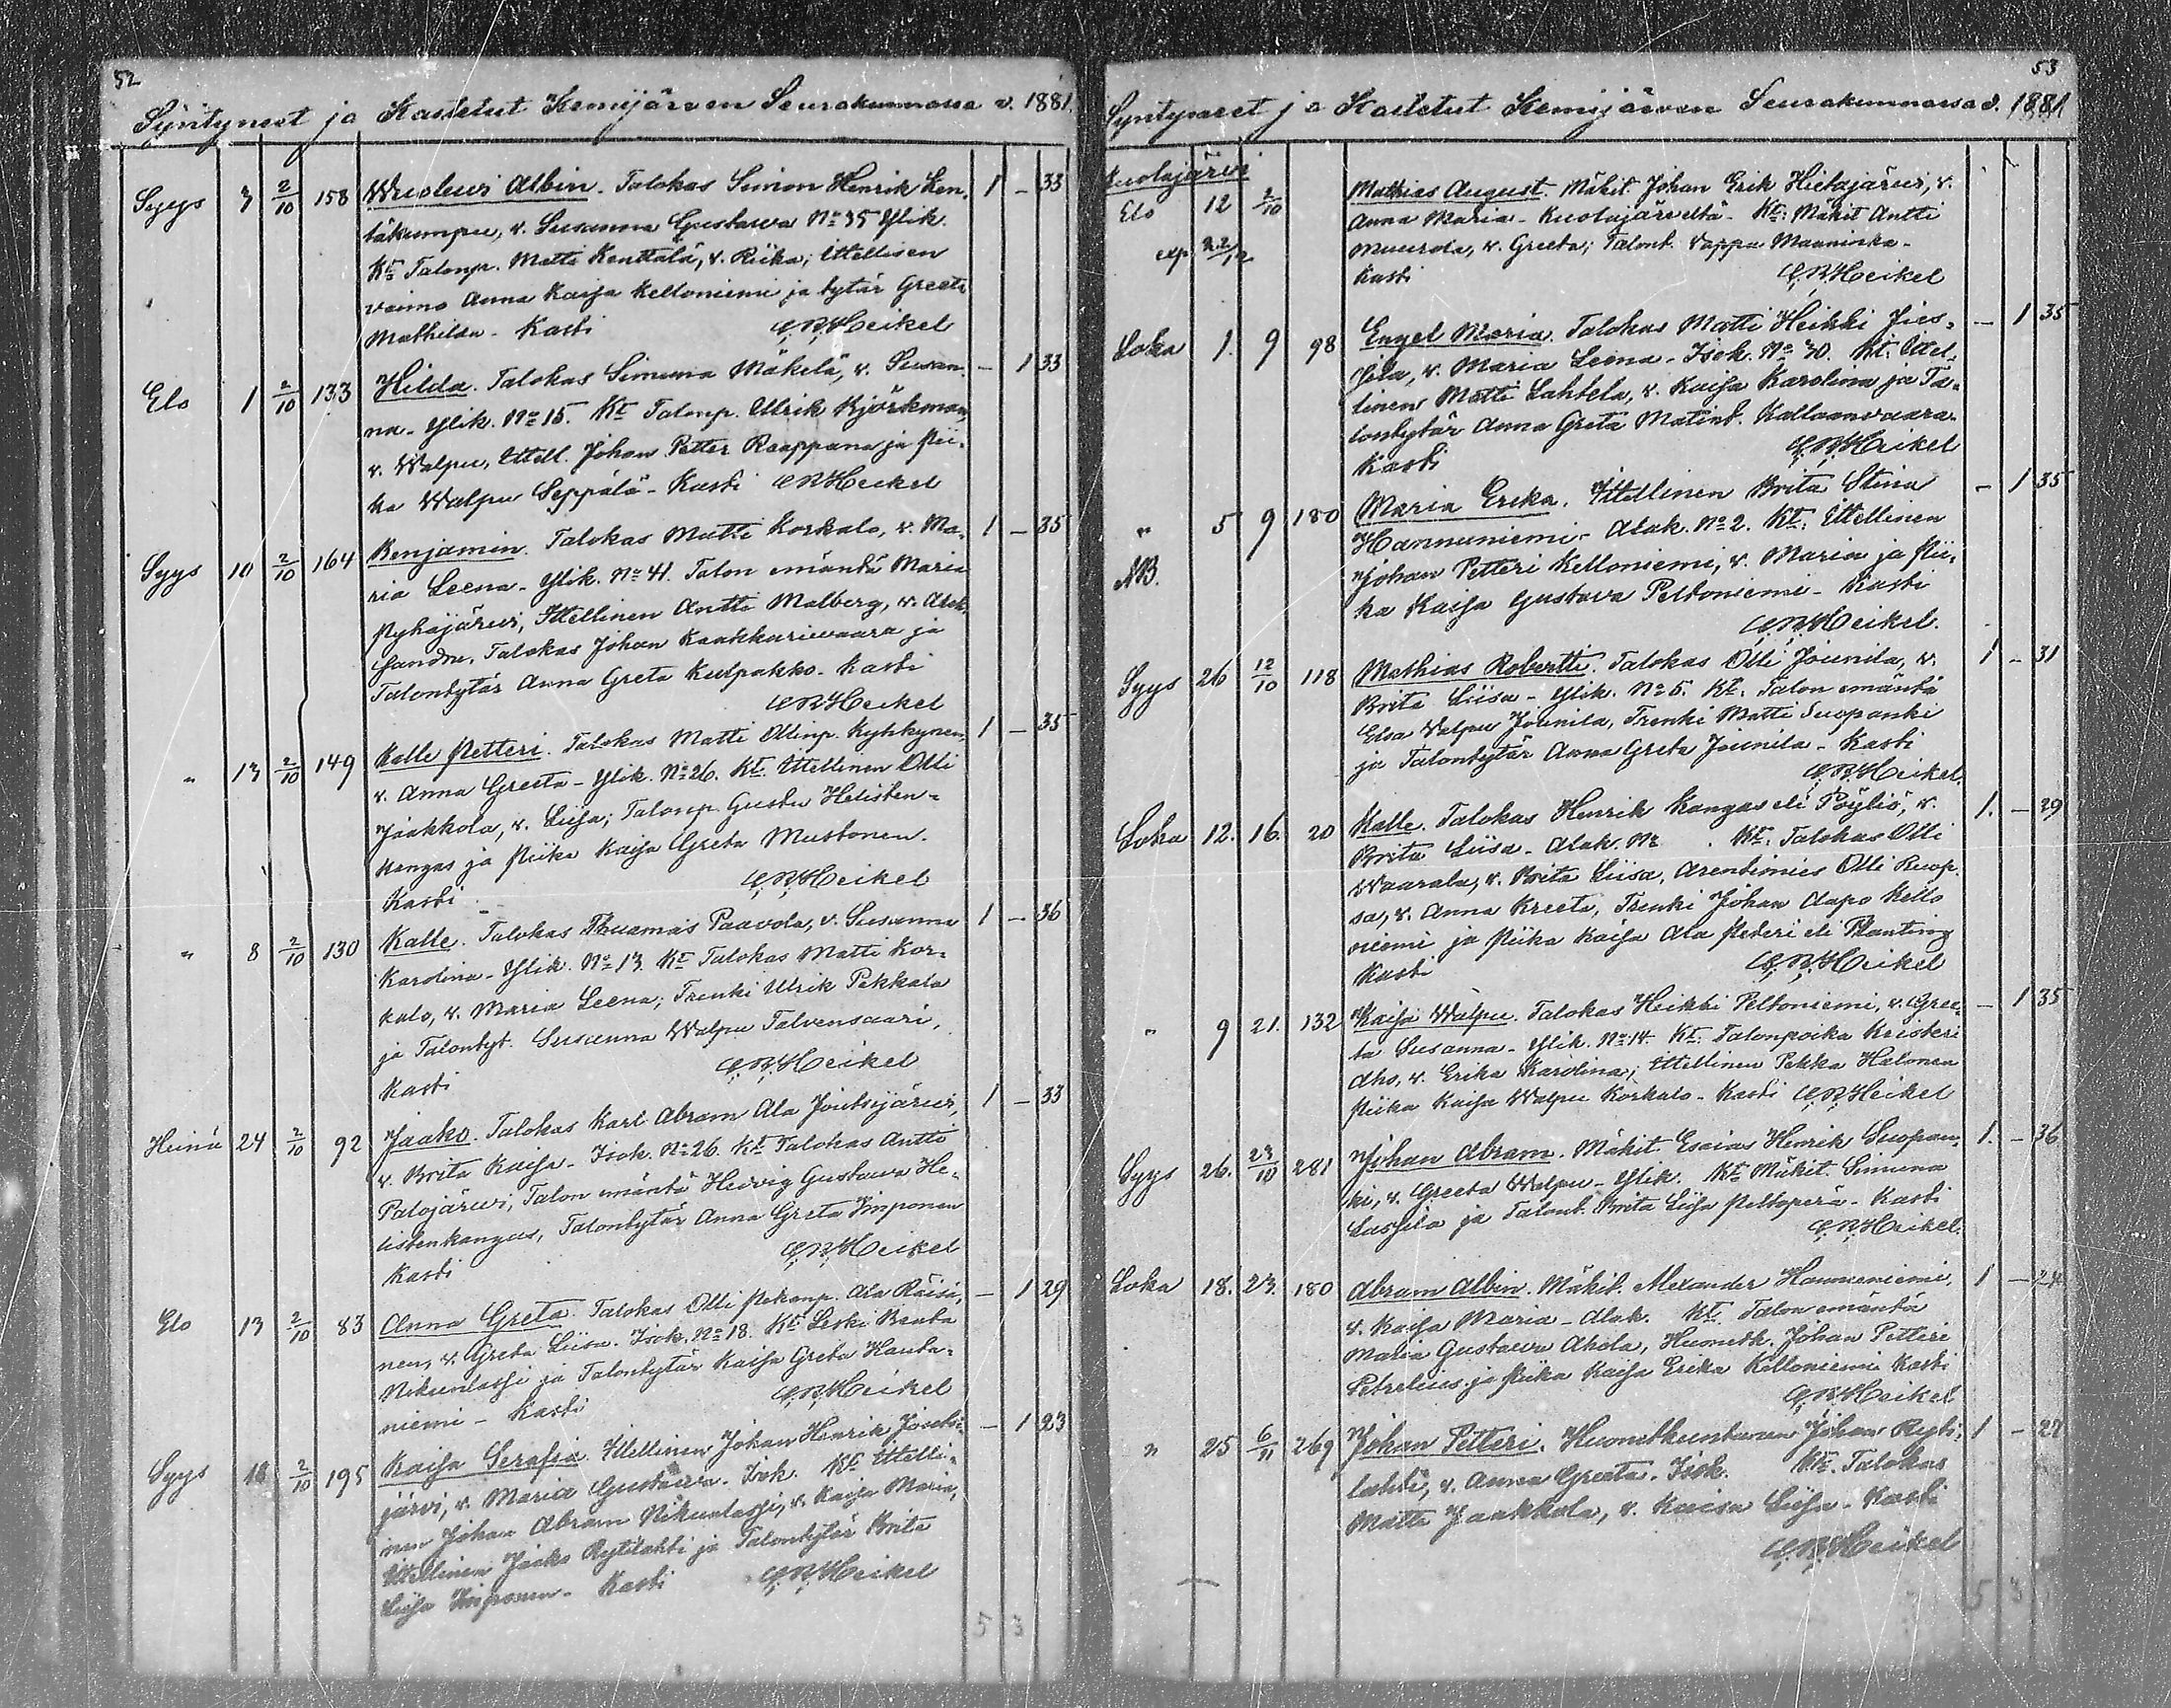 52
Syntyneet ja Kastetut Kemijärven Seurakunnassa v. 1881.
Syys 3 2/10 158 Wuolevi Albin. Talokas Simon Henrik Ken- 1 – 33
täkumpu, v. Susanna Gustava No 35 Ylik.
Kt. Talonp. Matti Kenttälä, v. Riika; Ittellisen
vaimo Anna Kaisa Kelloniemi ja tytär Greeta
Mathilda - Kasti C.R.Heikel
Elo 1 2/10 133 Hilda. Talokas Simuna Mäkelä, v. Susan- – 1 33
na - Ylik. No 15. Kt Talonp. Ulrik Björkman,
v. Walpu, Ittell. Johan Petter Raappana ja Pii-
ka Walpu Seppälä - Kasti C.R.Heikel
Syys 10 2/10 164 Benjamin. Talokas Matti Korkalo, v. Ma- 1 – 35
ria Leena - Ylik. No 41. Talon emäntä Maria
Pyhäjärvi, Ittellinen Antti Malberg, v. Alek-
sandra, Talokas Johan Kaakkurivaara ja
Talontytär Anna Greta Kulpakko - Kasti
C.R.Heikel
" 13 2/10 149 Kalle Petteri. Talokas Matti Ollinp. Kyhkynen, 1 – 35
v. Anna Greeta - Ylik. No 26. Kt. Ittellinen Olli
Jaakkola, v. Liisa; Talonp. Gustu Helisten-
kangas ja Piika Kaisa Greta Mustonen.
Kasti C.R.Heikel
" 8 2/10 130 Kalle. Talokas Thuamas Paavola, v. Susanna 1 – 36
Karolina - Ylik. No 13. Kt Talokas Matti Kor-
kalo, v. Maria Leena; Trenki Ulrik Pekkala
ja Talontyt. Susanna Walpu Talvensaari,
Kasti C.R.Heikel
Heinä 24 2/10 92 Jaako. Talokas Karl Abram Ala Joutsijärvi, 1 – 33
v. Brita Kaisa - Isok. No 26. Kt Talokas Antti
Palojärvi, Talon emäntä Hedvig Gustava He-
listenkangas, Talontytär Anna Greta Imponen
Kasti C.R.Heikel
Elo 13 2/10 83 Anna Greta. Talokas Olli Pekanp. Ala Räisä- – 1 29
nen, v. Greta Liisa. Isok. No 18. Kt Leski Beata
Nikunlassi ja Talontytär Kaisa Greta Hauta-
niemi - Kasti C.R.Heikel
Syys 18 2/10 195 Kaisa Serafia. Ittellinen Johan Henrik Joutsi- – 1 23
järvi, v. Maria Gustava. Isok. Kt Ittelli-
nen Johan Abram Nikunlassi, v. Kaisa Maria,
Ittellinen Jaako Rytilahti ja Talontytär Brita
Liisa Imponen - Kasti C.R.Heikel
5 3
53
Syntyneet ja Kastetut Kemijärven Seurakunnassa v. 1881.
Kuolajärvi
Elo 12 2/10 Mathias August. Mäkit. Johan Erik Hietajärvi, v.
Anna Maria - Kuolajärveltä - Kt: Mäkit Antti
exp 22/12 Muurola, v. Greeta; Talont. Vappu Manninka -
Kasti C.R.Heikel
Loka 1. 9 98 Engel Maria. Talokas Matti Heikki Jies- – 1 35
sila, v. Maria Leena - Isok. No 30. Kt. Ittel-
linen Matti Lahtela, v. Kaisa Karolina ja Ta-
lontytär Anna Greta Matint. Kallaanvaara.
Kasti C.R.Heikel
" 5 9 180 Maria Erika. Ittellinen Brita Stina – 1 35
Hannuniemi - Alak. No 2. Kt. Ittellinen
NB. Johan Petteri Kelloniemi, v. Maria ja Pii-
ka Kaisa Gustava Peltoniemi - Kasti
C.R.Heikel.
Syys 26 12/10 118 Mathias Robertti. Talokas Olli Jounila, v. 1 – 31
Brita Liisa - Ylik. No 5. Kt. Talon emäntä
Elsa Walpu Jounila, Trenki Matti Suopanki
ja Talontytär Anna Greta Jounila - Kasti
C.R.Heikel.
Loka 12. 16. 20 Kalle. Talokas Henrik Kangas eli Pöyliö, v. 1. – 29
Brita Liisa - Alak. No . Kt. Talokas Olli
Waarala, v. Brita Liisa, Arentimies Olli Ruop-
sa, v. Anna Kreeta, Trenki Johan Aapo Kello
niemi ja Piika Kaisa Ala Peteri eli Planting
Kasti C.R.Heikel
" 9 21. 132 Kaisa Walpu. Talokas Heikki Peltoniemi, v. Gree- – 1 35
ta Susanna - Ylik. No 14. Kt. Talonpoika Kristeri
Aho, v. Erika Karolina; Ittellinen Pekka Halonen
Piika Kaisa Walpu Korkalo - Kasti C.R.Heikel
Syys 26. 23/10 281 Johan Abram. Mäkit. Esaias Henrik Suopan- 1. – 36
ki, v. Greeta Walpu - Ylik. Kt. Mäkit. Simuna
Lassila ja Talont. Brita Liisa Peltoperä - Kasti
C.R.Heikel.
Loka 18. 23. 180 Abram Albin. Mäkit. Alexander Hannuniemi, 1 – 24
v. Kaisa Maria - Alak. Kt. Talon emäntä
Maria Gustava Ahola, Huonetk. Johan Petteri
Petrelius ja Piika Kaisa Erika Kelloniemi Kasti
C.R.Heikel
" 25 6/11 269 Johan Petteri. Huonekuntainen Johan Ryti- 1 – 22
lahti, v. Anna Greeta. Isok. Kt. Talokas
Matti Jaakkola, v. Kaisa Liisa - Kasti
C.R.Heikel
5 3